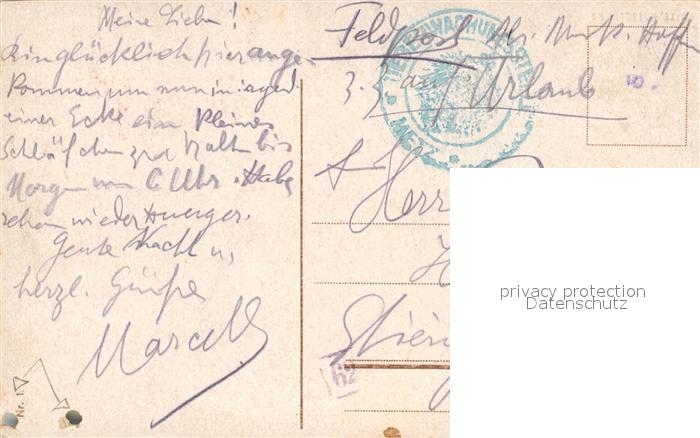 Meine Lieben!
Bin glücklich hier ange-
kommen um nun in irgend
einer Ecke ein kleines
Schläfchen zu halten bis
Morgen um 6 Uhr. Habe
schon wieder Hunger.
Gute Nacht u.
herzl. Grüße
Marcell
Feldpost Abs. Musk.
z. Z. auf Urlaub
Herr
METZ
62
Nr. 1
privacy protection
Datenschutz